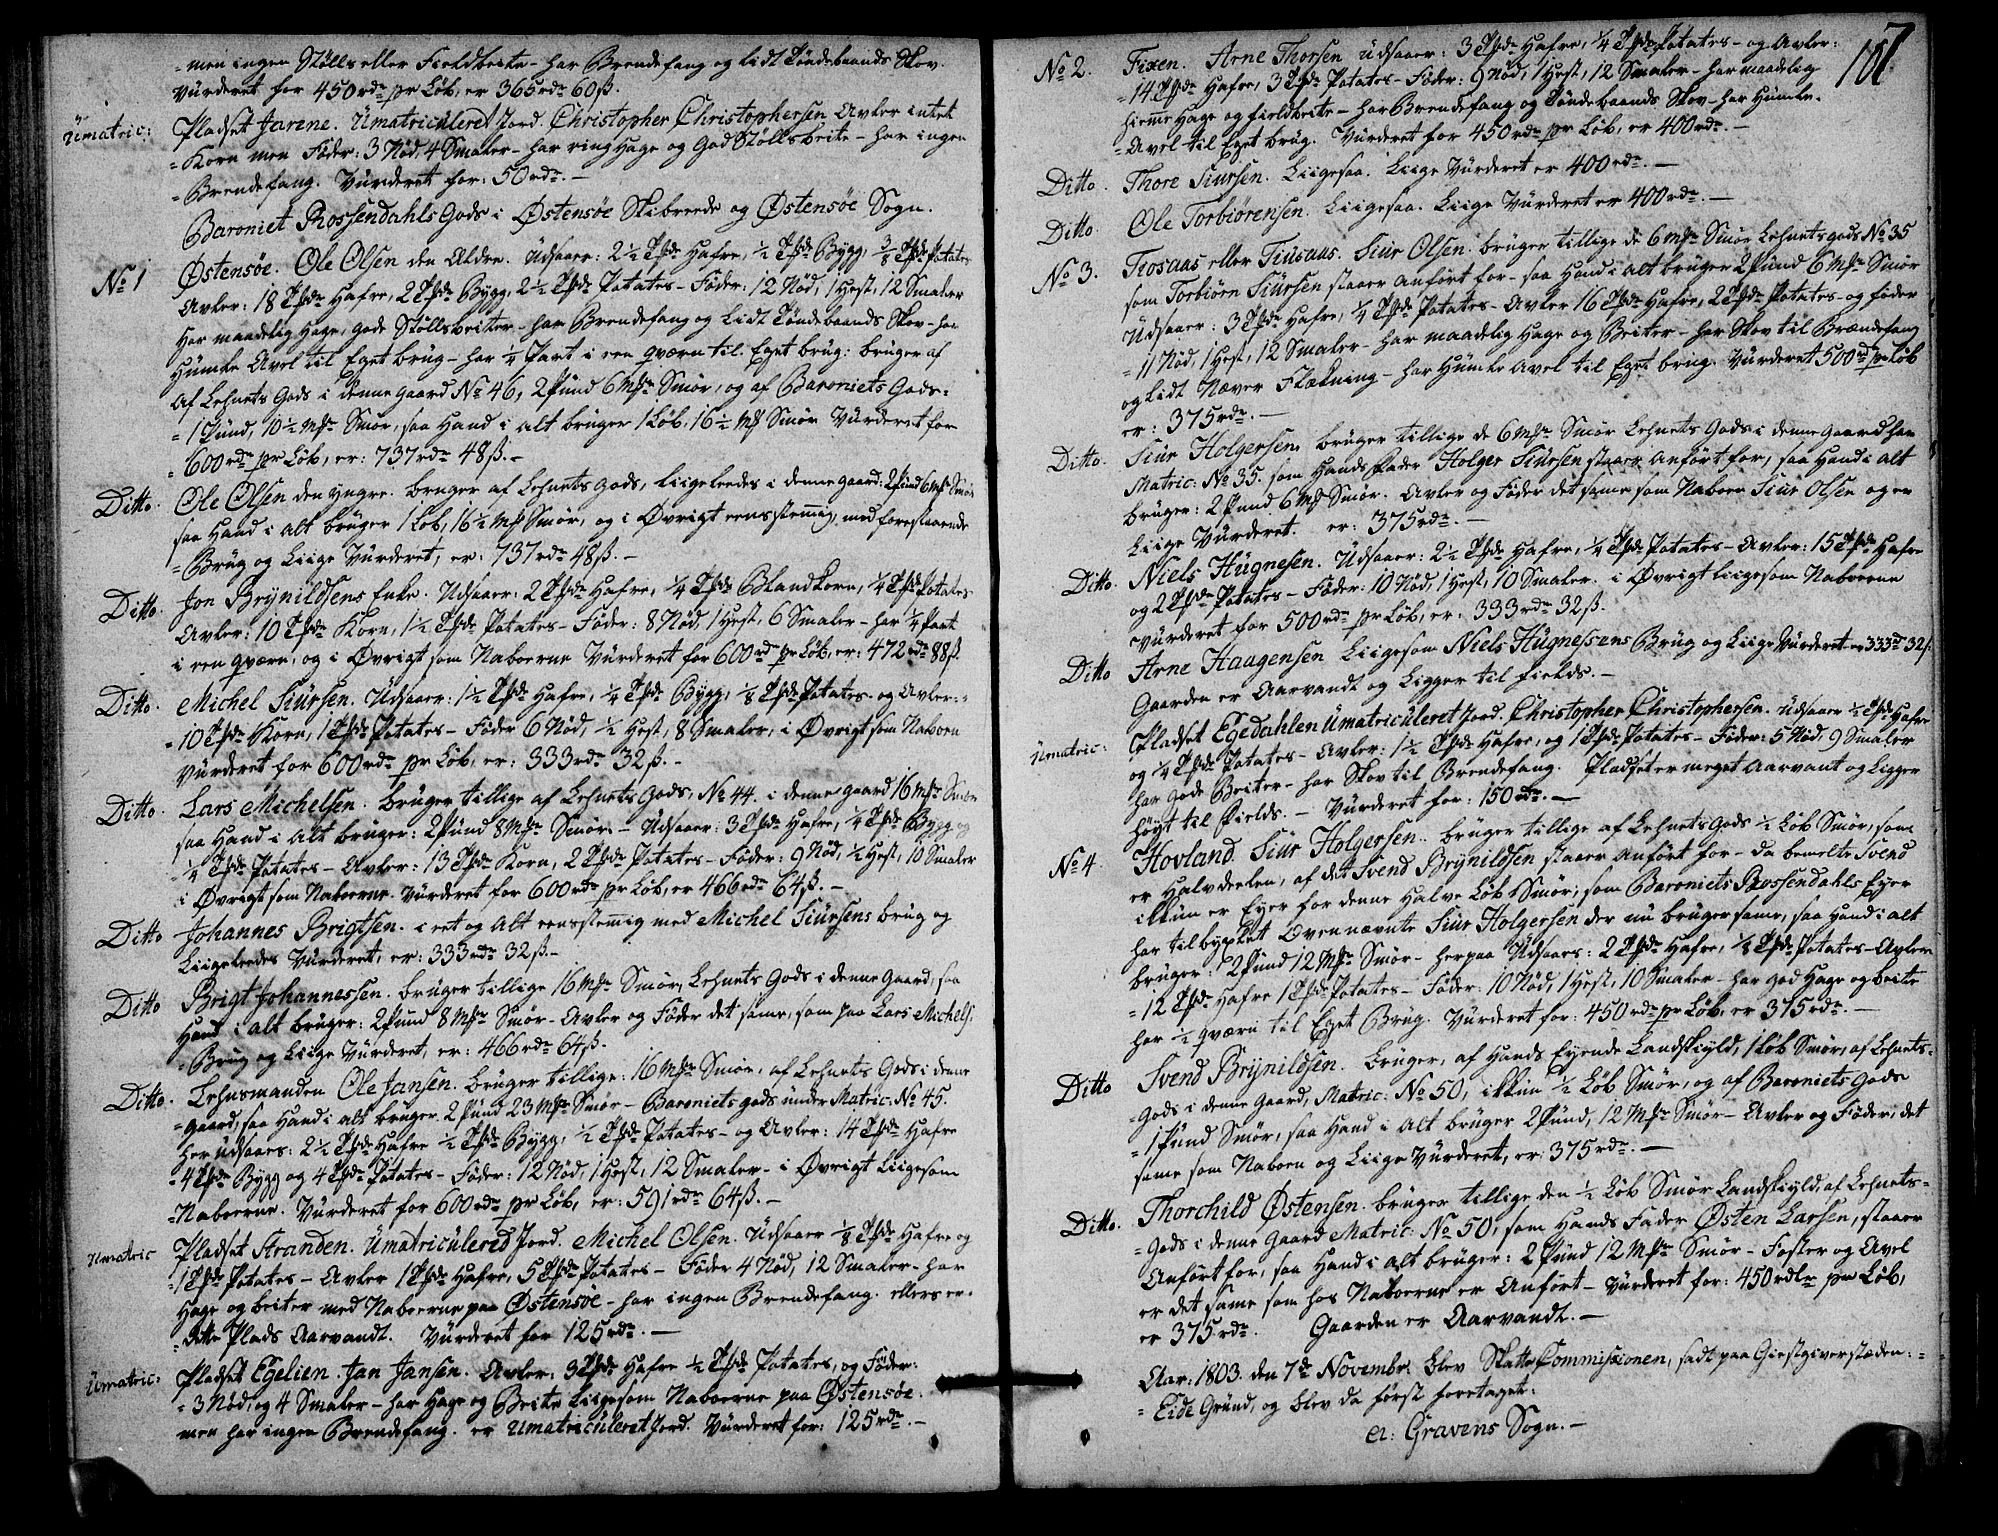 -men ingen Støllseller Fieldbeite - har Brendefang og lidt Tøndebaands Skov.
Vurderet for 450rdr pr Løb, er 365rdr 60ß.
Umatric: Pladset Jarene. Umatriculeret Jord. Christopher Christophersen Avler intet
-Korn men Føder: 3 Nød, 4 Smaler - har ring Hage og God Støllsbeite - har ingen
-Brendefang. Vurderet for: 50rdr. -
Baroniet Rossendahls Gods i Østensøe Skibreede og Østensøe Sogn.
No 1 Østensøe. Ole Olsen den Ældre. Udsaaer: 2 1/2 Tøndr Hafre, 1/2 Tøndr Bygg, 3/8 Tøndr Potates
Avler: 18 Tøndr Hafre, 2 Tøndr Bygg, 2 1/2 Tøndr Potates - Føder: 12 Nød, 1 Hest, 12 Smaler
Har maadelig Hage, gode Støllsbeiter - har Brendefang og lidt Tøndebaands Skov - har
Humle Avel til Eget brug - har 1/4 Part i een qværn til Eget brug: bruger af
Af Lehnets Gods i denne Gaard No 46, 2 Pund 6 Mkr Smør, og af Baroniets Gods -
-1 Pund, 10 1/2 Mkr Smør, saa Hand i alt bruger 1 Løb, 16 1/2 Mk Smør Vurderet for
-600rdr pr Løb, er: 737rdr 48ß. -
Ditto. Ole Olsen den Yngre. bruger af Lehnets Gods, liigeleedes i denne gaard: 2 Pund 6 Mkr Smør
saa Hand i alt bruger 1 Løb, 16 1/2 Mk Smør, og i Øvrigt eensstemig med forestaaende
-Brug og Liige Vurderet, er: 737rdr 48ß. -
Ditto. Jon Brynildsens Enke. Udsaaer: 2 Tøndr Hafre, 1/4 Tøndr Blandkorn, 1/4 Tøndr Potates
Avler: 10 Tøndr Korn, 1 1/2 Tøndr Potates - Føder: 8 Nød, 1 Hest, 6 Smaler - har 1/4 Part
i een qværn, og i Øvrigt som Naboerne Vurderet for 600rdr pr Løb, er: 472rdr 88ß.
Ditto. Michel Siursen. Udsaaer: 1 1/2 Tøndr Hafre, 1/4 Tøndr Bygg, 1/8 Tøndr Potates - og Avler: -
-10 Tøndr Korn, 1 Tøndr Potates - Føder 6 Nød, 1/2 Hest, 8 Smaler, i Øvrigt som Naboen
Vurderet for 600rdr pr Løb, er: 333rdr 32ß. -
Ditto. Lars Michelsen. bruger tillige af Lehnets Gods, No 44. i denne gaard 16 Mkr Smør
saa Hand i Alt bruger: 2 Pund 8 Mkr Smør. - Udsaaer: 3 Tøndr Hafre, 1/4 Tøndr Bygg og
1/4 Tøndr Potates - Avler: 13 Tøndr Korn, 2 Tøndr Potates - Føder: 9 Nød, 1/2 Hest, 10 Smaler
i Øvrigt som Naboerne. Vurderet for 600rdr pr Løb, er 466rdr 64ß. -
Ditto Johannes Brigtsen. i eet og Alt eensstemig med Michel Siursens brug og
Liigeleedes Vurderet, er: 333rdr 32ß. -
Ditto Brigt Johannessen. bruger tillige 16 Mkr Smør, Lehnets Gods i denne Gaard, saa
Hand i alt bruger: 2 Pund 8 Mkr Smør - Avler og Føder det same, som paa Lars Michels:
-Brug og Liige Vurderet, er: 466rdr 64ß.
Ditto. Lehnsmanden Ole Jansen. bruger tillige: 16 Mkr Smør, af Lehnets Gods i denne
-Gaard, saa Hand i alt bruger 2 Pund 23 Mkr Smør - Baroniets gods under Matric: No 45.
her udsaaes: 2 1/2 Tøndr Hafre 1/2 Tøndr Bygg, 1/2 Tøndr Potates - og Avler: 14 Tøndr Hafre
-4 Tøndr Bygg og 4 Tøndr Potates - Føder: 12 Nød, 1 Hest, 12 Smaler - i Øvrigt liigesom
-Naboerne. Vurderet for 600rdr pr Løb, er: 591rdr 64ß. -
Umatric Pladset Stranden. Umatriculered Jord. Michel Olsen. Udsaaer 1/8 Tøndr Hafre og
-1 Tøndr Potates - Avler 1 Tøndr Hafre, 5 Tøndr Potates - Føder 4 Nød, 12 Smaler - har
Hage og beiter med Naboerne paa Østensøe - har ingen Brendefang. ellers er -
-dette Plads Aarvandt. Vurderet for 125rdr. -
Umatric: Pladset Egelien. Jan Jansen. Avler: 3 Tøndr Hafre 1/2 Tøndr Potates, og Føder:
-3 Nød, og 4 Smaler - har Hage og Beite Liigesom Naboerne paa Østensøe.
men har ingen Brendefang. er Umatriculeret Jord. Vurderet for: 125rdr. -
107
No 2. Fixen. Arne Thorsen Udsaaer: 3 Tøndr Hafre, 1/4 Tøndr Potates - og Avler:
-14 Tøndr Hafre, 3 Tøndr Potates - Føder: 9 Nød, 1 Hest, 12 Smaler - har maadelig
hieme Hage og fieldbeite - har Brendefang og Tøndebaands Skov - har Humle -
-Avel til Eget brug. Vurderet for 450rdr pr Løb, er 400rdr. -
Ditto. Thore Siursen. Liigesaa. Liige Vurderet er 400rdr. -
Ditto. Ole Torbiørensen. Liigesaa. Liige Vurderet er 400rdr. -
No 3. Tiosaas eller Tiusaas. Siur Olsen. bruger tillige de 6 Mkr Smør Lehnetsgods No 35
som Torbiørn Siursen staaer Anført for - saa Hand i alt bruger 2 Pund 6 Mkr Smør
Udsaaer: 3 Tøndr Hafre, 1/4 Tøndr Potates - Avler 16 Tøndr Hafre, 2 Tøndr Potates - og føder
-11 Nød, 1 Hest, 12 Smaler - har maadelig Hage og Beiter - har Skov til Brændefang
og lidt Næver Flækning - har Humle Avel til Eget brug. Vurderet 500rdr pr Løb
er: 375rdr. -
Ditto. Siur Holgersen, bruger tillige de 6 Mkr Smør Lehnets Gods i denne Gaard har
Matric: No 35. som Hands Fader Holger Siursen staaer Anført for, saa Hand i alt
bruger: 2 Pund 6 Mk Smør. Avler og Føder det same som Naboen Siur Olsen og er
Liige Vurderet. er: 375rdr. -
Ditto. Niels Hugnesen. Udsaaer: 2 1/2 Tøndr Hafre, 1/4 Tøndr Potates - Avler: 15 Tøndr Hafre
og 2 Tøndr Potates - Føder: 10 Nød, 1 Hest, 10 Smaler. i Øvrigt liigesom Naboerne
vurderet for 500rdr pr Løb, er: 333rdr 32ß.
Ditto Arne Haagensen Liigesom Niels Hugnessens Brug og Liige Vurderet er 333rdr 32ß.
Gaarden er Aarvandt og Ligger til fields. -
Umatric: Pladset Egedahlen Umatriculeret Jord. Christopher Christophersen. Udsaaer 1/2 Tøndr Hafre
og 1/4 Tøndr Potates - Avler: 1 1/2 Tøndr Hafre, og 1 Tøndr Potates - Føder: 5 Nød, 9 Smaler
har gode Beiter - har Skov til Brendefang. Pladset er meget Aarvant og Ligger
høyt til Fields. - Vurderet for: 150rdr. -
No 4. Hovland. Siur Holgersen. bruger tillige af Lehnets Gods 1/2 Løb Smør, som
er Halvdeelen, af det Svend Brynildsen staaer Anført for - da bemelte Svend
ikkun er Eyer for denne Halve Løb Smør, som Baroniets Rossendahls Eyer
har tilbyxlet Ovennævnte Siur Holgersen der nu bruger same, saa Hand i alt
bruger: 2 Pund 12 Mkr Smør - herpaa Udsaaes: 2 Tøndr Hafre, 1/8 Tøndr Potates - Avler
-12 Tøndr Hafre 1 Tøndr Potates - Føder: 10 Nød, 1 Hest, 10 Smaler - har god Hage og beite
har 1/2 qværn til Eget Brug. Vurderet for: 450rdr pr Løb, er 375rdr. -
Ditto Svend Brynildsen. bruger, af Hands Eyende Landskyld, 1 Løb Smør, af Lehnets-
-Gods i denne Gaard, Matric: No 50, ikkun 1/2 Løb Smør, og af Baroniets Gods
-1 Pund Smør, saa Hand i Alt bruger 2 Pund, 12 Mkr Smør - Avler og Føder, det
same som Naboen og Liige Vurderet, er: 375rdr. -
Ditto. Thorchild Østensen. bruger tillige den 1/2 Løb Smør Landskyld, af Lehnets-
-Gods i denne Gaard Matric: No 50, som Hands Fader Østen Larsen, staaer
Anført for, saa Hand i Alt bruger: 2 Pund 12 Mkr Smør - Foster og Avel
er det same som hos Naboerne er Anført - Vurderet for: 450rdlr pr Løb,
er 375rdr. Gaarden er Aarvandt. -
Aar: 1803. den 7de Novembr. blev Skatte Commissionen, sadt paa Giestgiverstæden: -
-Eide Grund, og blev da først foretaget:
a: Gravens Sogn. -